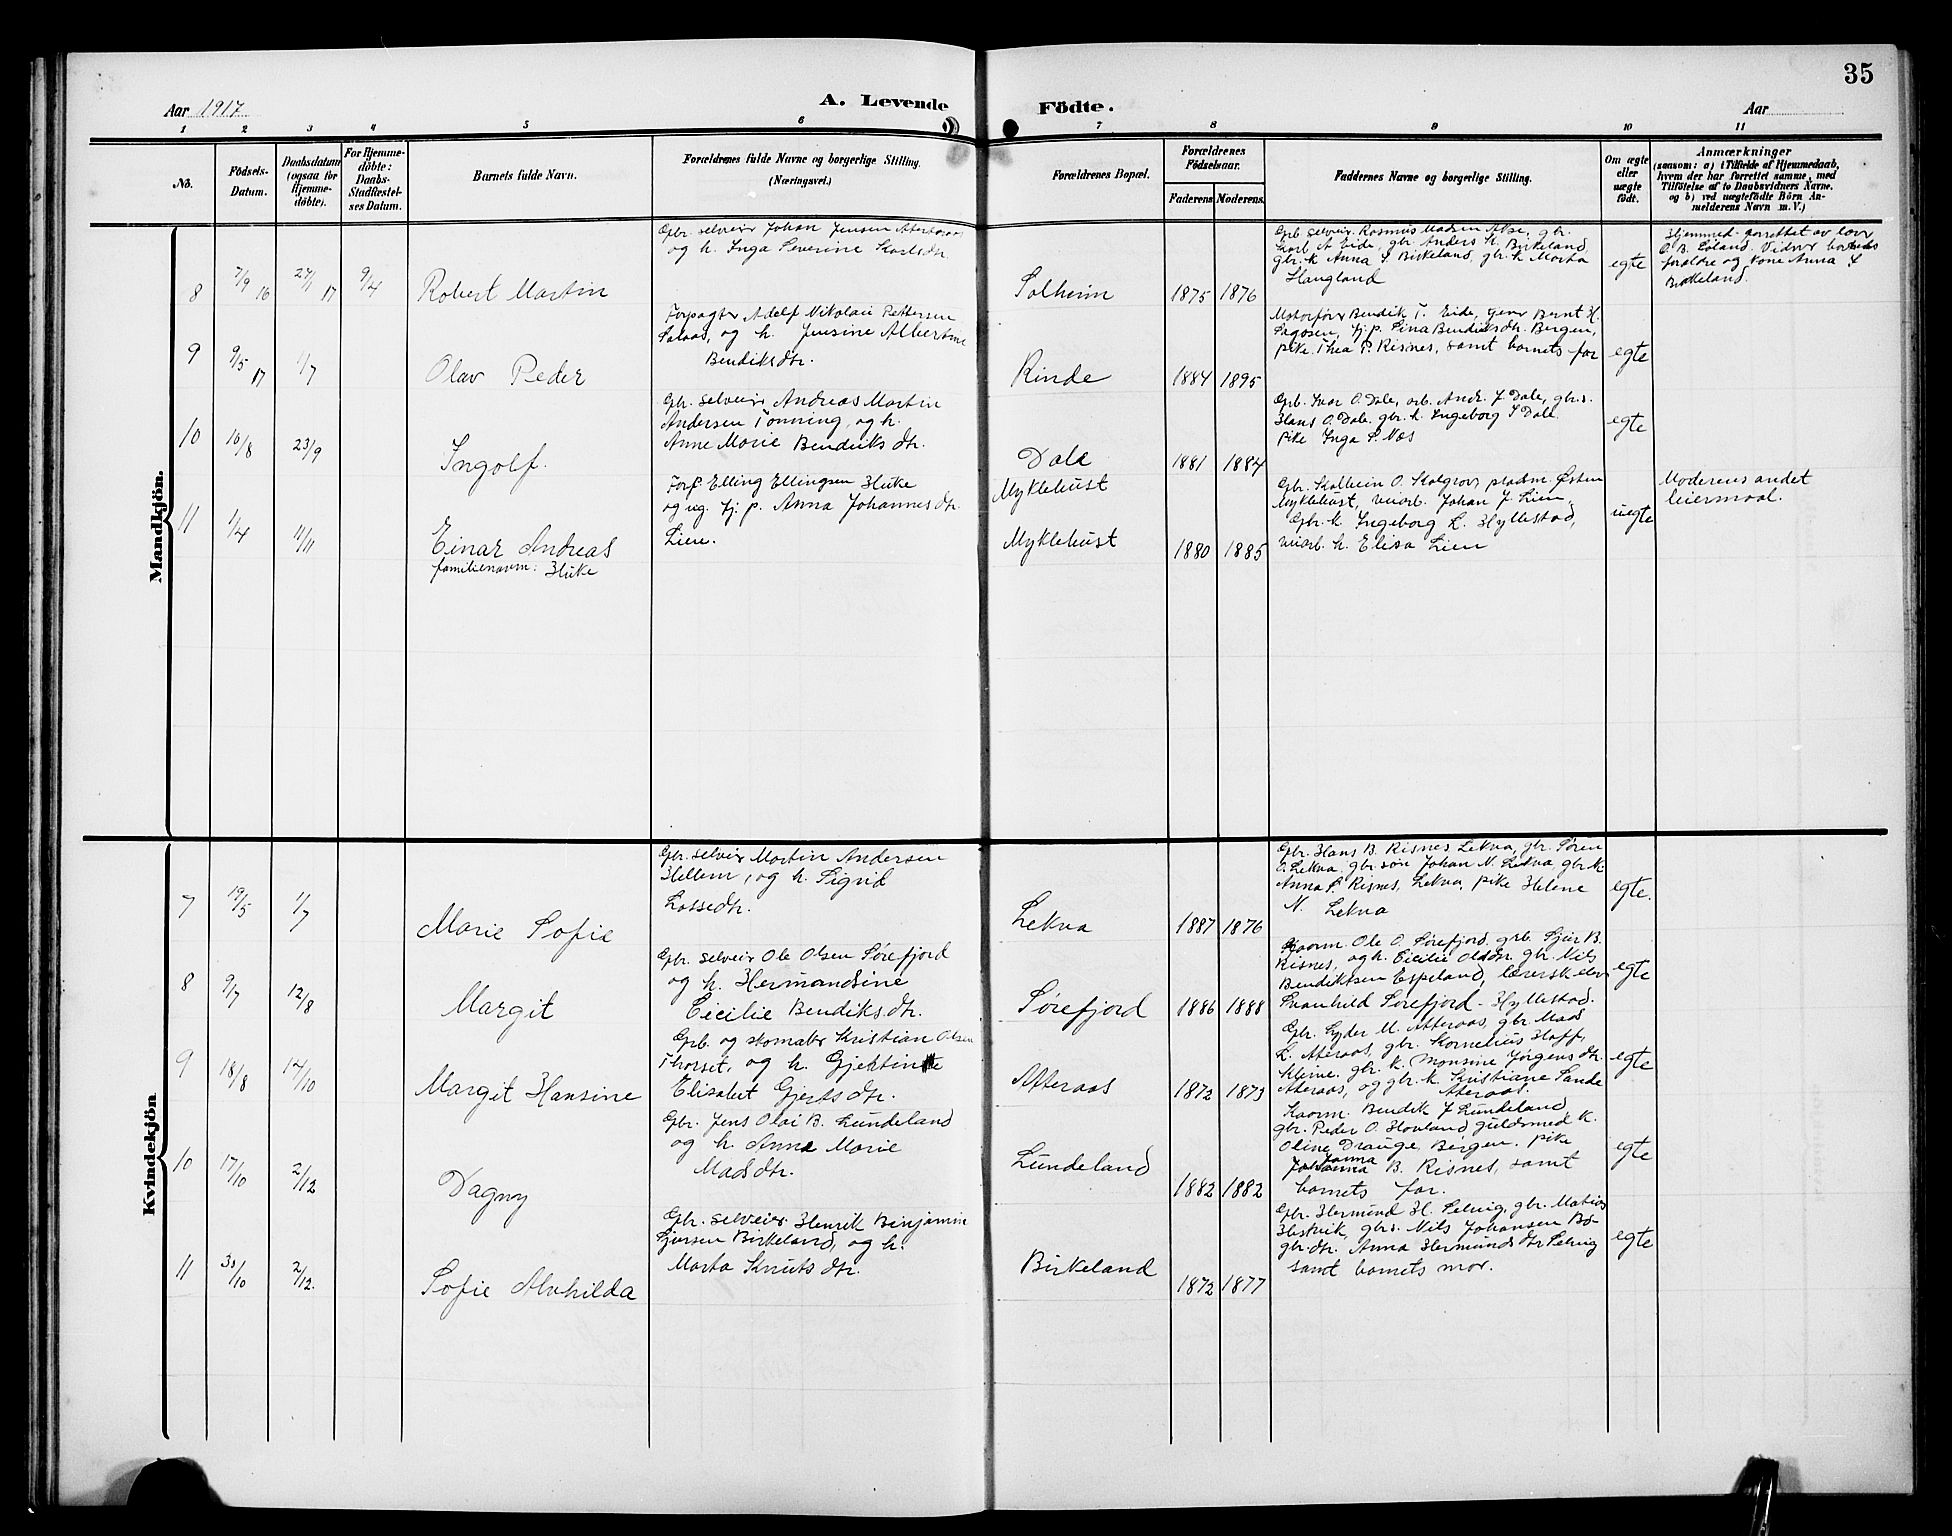 35
Aar 1917
A. Levende
Födte.
Aar
1 2 3 4 5 6 7 8 9 10 11
No.
Födsels-
Datum.
Daabsdatum
(ogsaa for
Hjemme-
döbte).
For Hjemme-
döbte:
Daabs-
Stadfæstel-
ses Datum.
Barnets fulde Navn.
Forældrenes fulde Navne og borgerlige Stilling.
(Næringsvei.)
Forældrenes Bopæl.
Forældrenes
Födselsaar.
Faderens. Moderens.
Faddernes Navne og borgerlige Stilling.
Om ægte
eller
uægte
födt.
Anmærkninger
(saasom: a) i Tilfælde af Hjemmedaab,
hvem der har forrettet samme, med
Tilföielse af to Daabsvidners Navne.
og b) ved uægtefödte Börn An-
melderens Navn m. V.)
Mandkjön.
8
7/9 16
27/1 17
9/4
Robert Martin
Gbr. selveier Johan Jensen
og h. Inga Severine Karlsdtr.
Solheim
1875 1876
Gbr. selveier. Rasmus Madsen gbr.
Karl A Eide, gbr. Anders H. Birkeland
gbr. k Anna S. Birkeland, gbr. k Marta
Haugland
egte
Hjemmed. forrettet av lærer
O. B. Löland. Vidner barnets
foreldre og kone Anna S
Birkeland.
9
9/5 17
1/7
Olav Peder
Forpagter Adolf Nikolai Pettersen
og h. Jensine Albertine
Bendiksdtr.
Rinde
1884 1895
Motorfører Bendik T. Eide, Bernt H.
tj. p. Sina Bendiksdtr. Bergen,
pike Thea P. Risnes, samt barnets far
egte
10
16/8
23/9
Ingolf.
Gbr. selveier Andreas Martin
Andersen Tonning, og h.
Anne Marie Bendiksdtr.
Dale
1881 1884
Gbr. Ivar O. Dale, arb. Andr. J Dale, gbr. s.
Hans O. Dale, gbr. k. Ingeborg J Dale.
pike Inga P. Næs
egte
11
1/4
11/11
Einar Andreas
familienavn: Huke
Forp. Elling Ellingsen Huke
og ug. tj. p. Anna Johannesdtr.
Lien.
Myklebust
Myklebust
1880 1885
Gbr. Skolheim O. pladsm. Østen
Myklebust, veiarb. Johan J. Lien,
Gbr. k Ingeborg L. Hyllestad,
veiarb. h. Elisa Lien
uegte
Moderens andet
leiermaal.
Kvindekjön
7
19/5
1/7
Marie Sofie
Gbr. selveier Martin Andersen
Hellem, og h. Sigrid
Lassedtr.
Lekva
1887 1876
Gbr. Hans B. Risnes Lekva, gbr. Søren
O. Lekva, gbr. søn Johan N. Lekva gbr. k
Anna S. Risnes, Lekva, pike Helene
N. Lekva
egte.
8
9/7
12/8
Margit
Gbr. selveier Ole Olsen Sørefjord
og h. Hermandsine
Cicilie Bendiksdtr.
Sørefjord
1886 1888
Kaarm. Ole O. Sørefjord, gbr. Sjur B.
Risnes, og h. Cicilie Olsdtr. gbr. Nils
Bendiktsen Espeland, lærerskelev
Svanhild Sørefjord - Hyllestad.
egte
9
18/8
14/10
Margit Hansine
Gbr. og skomaker Kristian Olsen
Thorset, og h. Gjertine
Elisabet Gjertsdtr.
Atteraas
1872 1873
Gbr. Lyder M. Atteraas, gbr Mads
L. Atteraas, gbr. Kornelius Hoff,
Kleine, gbr. k. Monsine Jørgensdtr.
Atteraas, og gbr. k Kristiane Sande
Atteraas
egte
10
17/10
2/12
Dagny
Gbr. Jens Olai B. Lundeland
og h. Anna Marie
Madsdtr.
Lundeland
1882 1882
Kaarm. Bendik J Lundeland
gbr. Peder O. Hovland gieldsmed k.
Oline Drauge, Bergen. pike
Janna
Johanna B. Risnes, samt
barnets far.
egte
11
30/10
2/12.
Sofie Alvhilda
Gbr. selveier Henrik Binjamin
Sjursen Birkeland, og h.
Marta Knutsdtr.
Birkeland
1872 1877
Gbr. Hermund H. Selvig, gbr. Matias
Hestvik, gbr. s. Nils Johansen Bø-
gbr. dtr. Anna Hermundsdtr Selvig
samt barnets mor.
egte